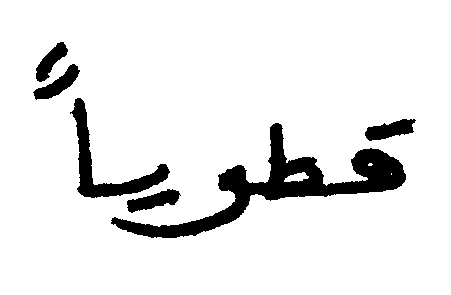 قطوياً